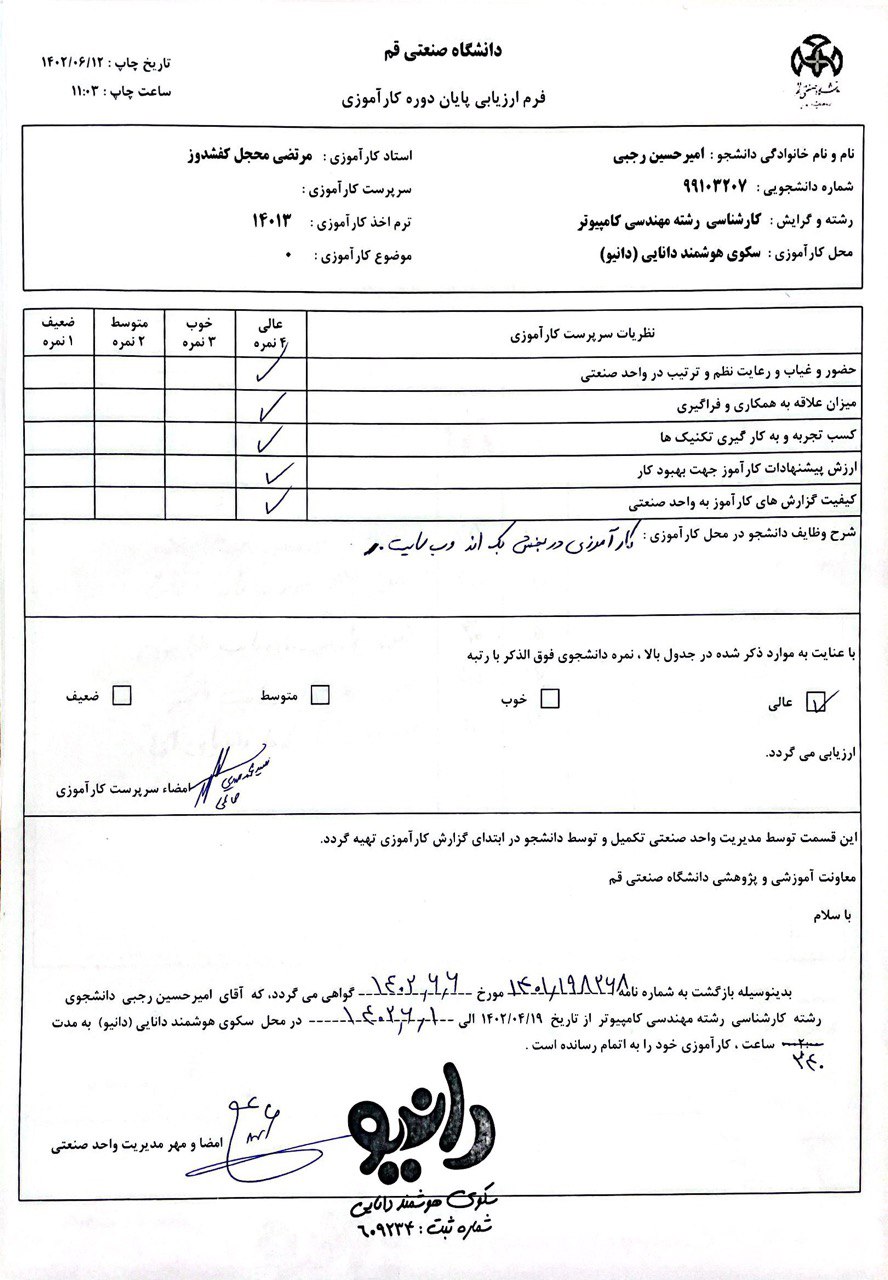 دانشگاه صنعتی قم
فرم ارزیابی پایان دوره کارآموزی
تاریخ چاپ : ۱۴۰۲/۰۶/۱۲
ساعت چاپ : ۱۱:۰۳
نام و نام خانوادگی دانشجو : امیرحسین رجبی
استاد کارآموزی : مرتضی محجل کفشدوز
شماره دانشجویی : ۹۹۱۰۳۲۰۷
سرپرست کارآموزی :
رشته و گرایش : کارشناسی رشته مهندسی کامپیوتر
ترم اخذ کارآموزی : ۱۴۰۱۳
محل کارآموزی : سکوی هوشمند دانایی (دانیو)
موضوع کارآموزی : ۰
نظریات سرپرست کارآموزی
عالی ۴ نمره
خوب ۳ نمره
متوسط ۲ نمره
ضعیف ۱ نمره
حضور و غیاب و رعایت نظم و ترتیب در واحد صنعتی
میزان علاقه به همکاری و فراگیری
کسب تجربه و به کار گیری تکنیک ها
ارزش پیشنهادات کارآموز جهت بهبود کار
کیفیت گزارش های کارآموز به واحد صنعتی
شرح وظایف دانشجو در محل کارآموزی : کارآموزی در بخش بک اند وب سایت .
با عنایت به موارد ذکر شده در جدول بالا ، نمره دانشجوی فوق الذکر با رتبه
عالی خوب متوسط ضعیف
ارزیابی می گردد.
امضاء سرپرست کارآموزی
این قسمت توسط مدیریت واحد صنعتی تکمیل و توسط دانشجو در ابتدای گزارش کارآموزی تهیه گردد.
معاونت آموزشی و پژوهشی دانشگاه صنعتی قم
با سلام
بدینوسیله بازگشت به شماره نامه ۱۴۰۱,۱۹۸۲۶۸ مورخ ۱۴۰۲,۶,۶ گواهی می گردد، که آقای امیرحسین رجبی دانشجوی
رشته کارشناسی رشته مهندسی کامپیوتر از تاریخ ۱۴۰۲/۰۴/۱۹ الی ۱۴۰۲,۶,۱۰ در محل سکوی هوشمند دانایی (دانیو) به مدت
۲۰۰ ساعت ، کارآموزی خود را به اتمام رسانده است .
۲۴۰
امضا و مهر مدیریت واحد صنعتی
دانیو
سکوی هوشمند دانایی
شماره ثبت : ۶۰۹۲۳۴